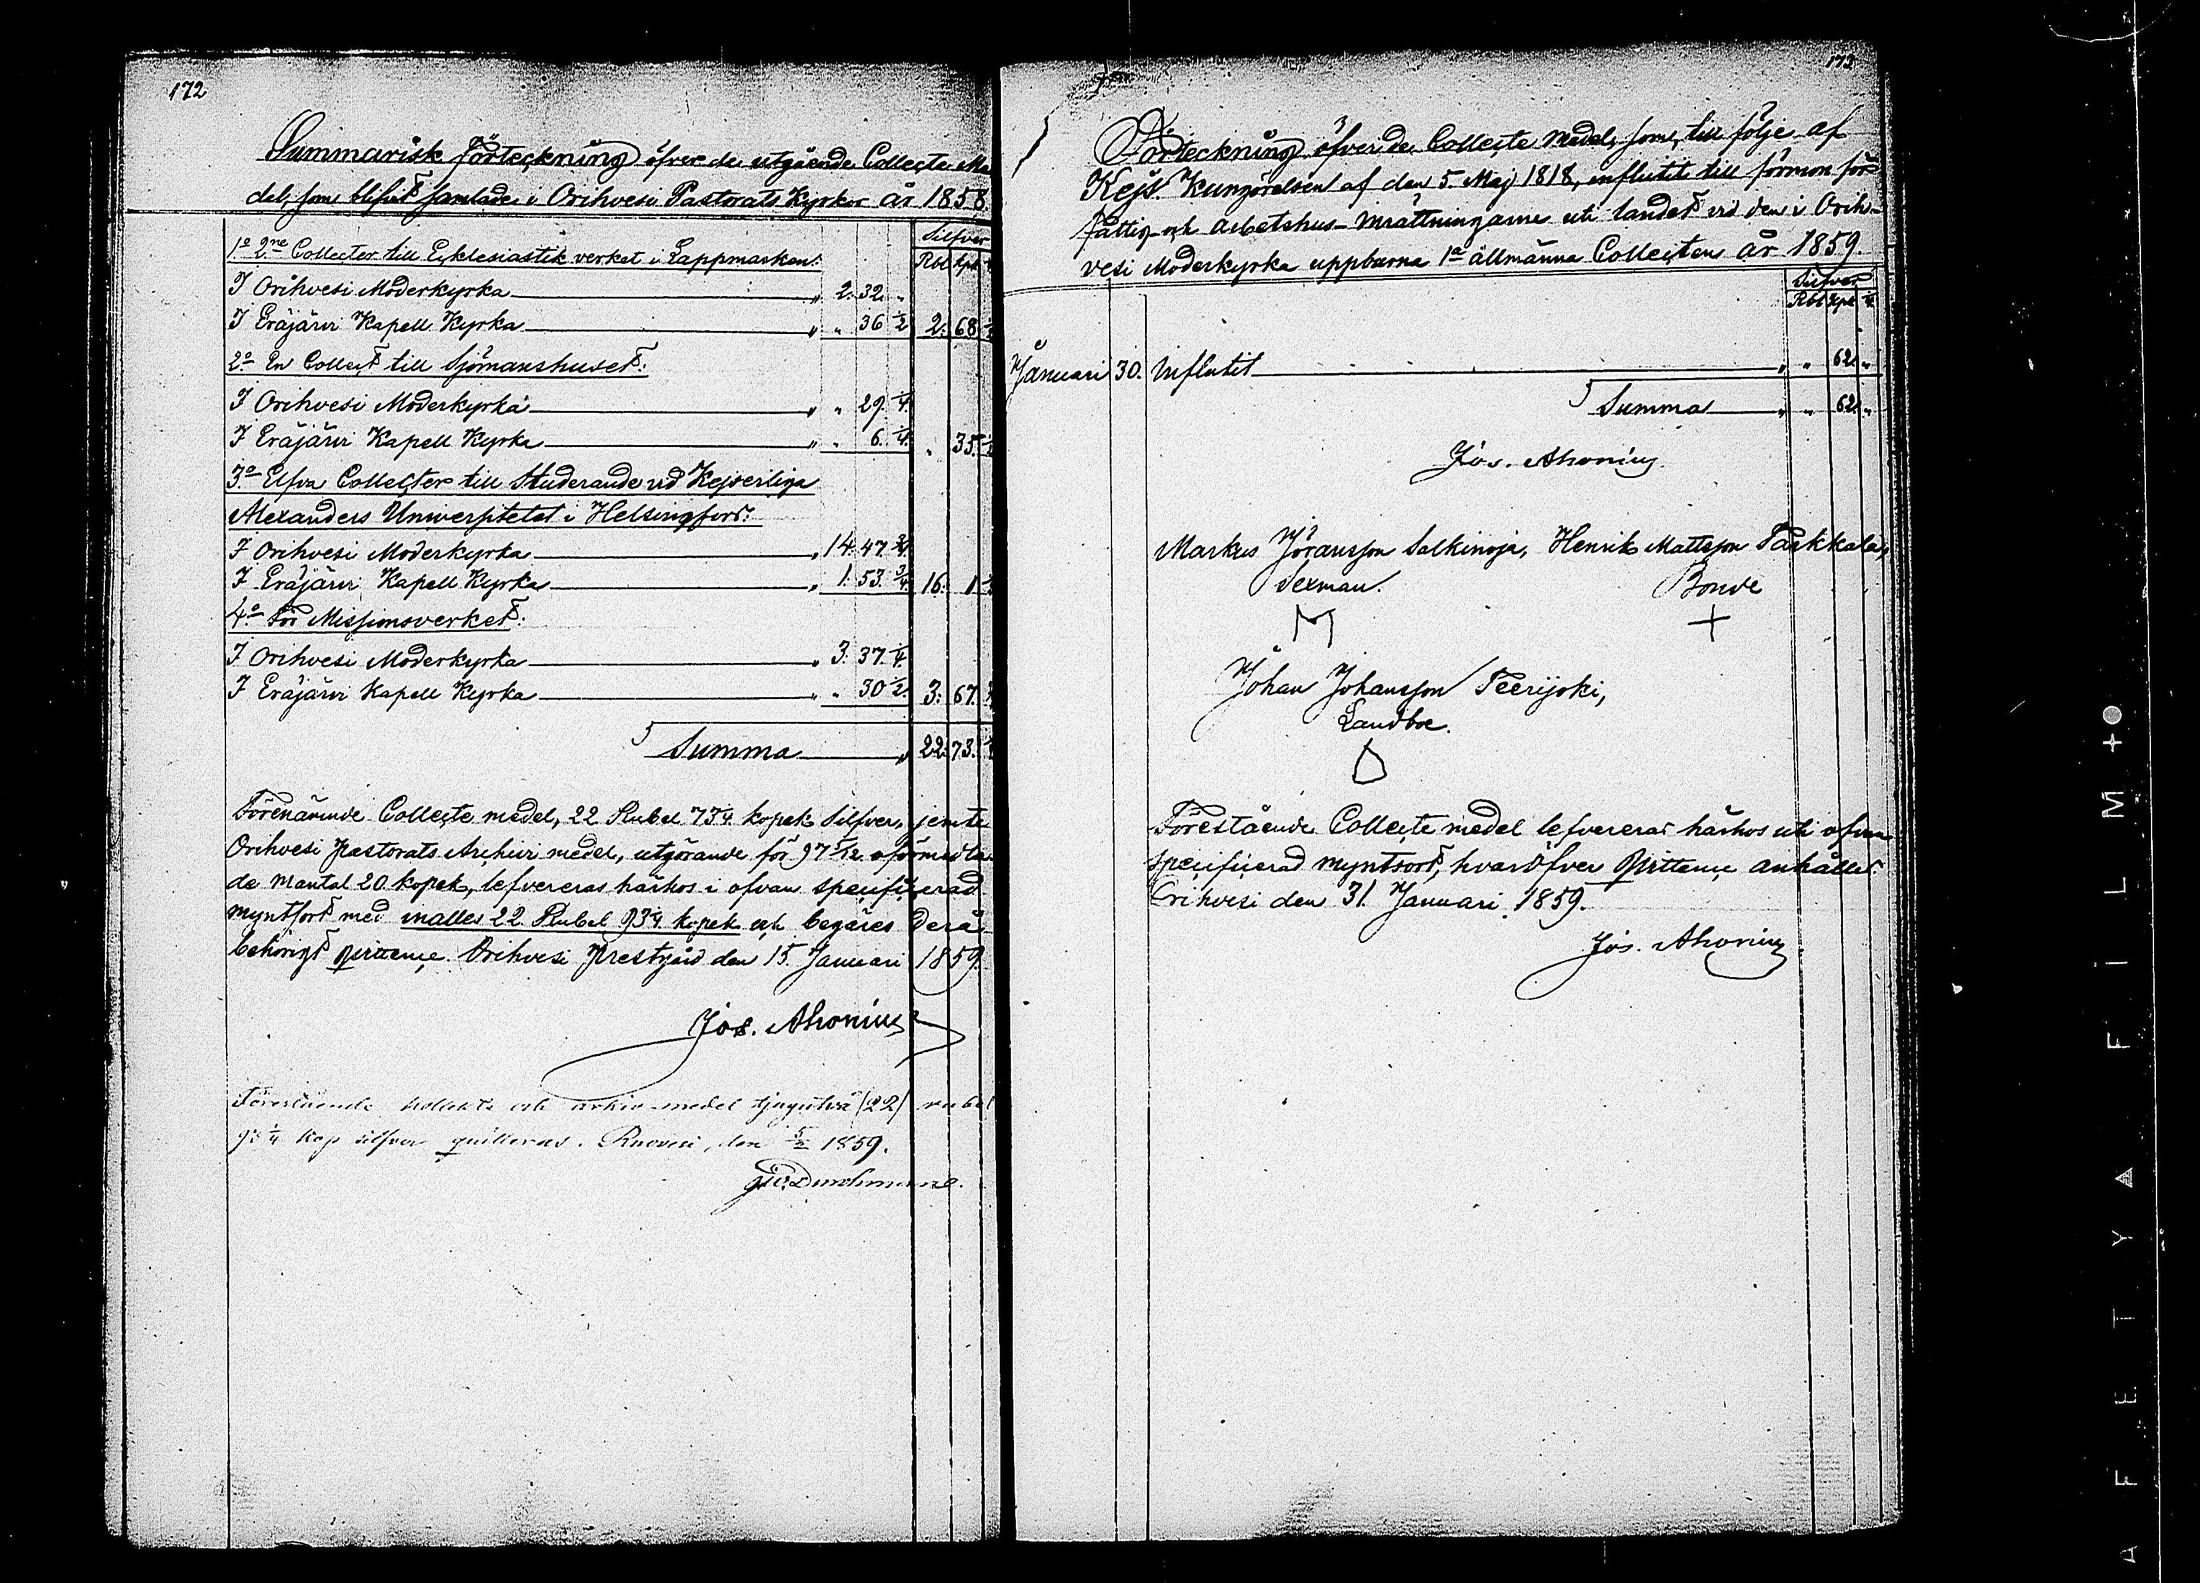 172
Summarisk Förteckning öfver de utgående Collecte Me-
del, som blifvit samlade i Orihvesi Pastorats Kyrkor år 1858.
Silfver
Rbl Kpk
1o 2ne Collecter till Ecklesiastik verket i Lappmarken:
I Orihvesi Moderkyrka „ 2. 32 „
I Eräjärvi Kapell Kyrka „ „ 36 1/2 2. 68 1/2
2o En Collect till Sjömanshuset:
I Orihvesi Moderkyrka „ „ 29 1/4
I Eräjärvi Kapell Kyrka „ „ 6 1/4 „ 35 1/2
3o Elfva Collecter till Studerande vid Kejserliga
Alexanders Universitetet i Helsingfors:
I Orihvesi Moderkyrka „ 14. 47 3/4
I Eräjärvi Kapell Kyrka „ 1. 53 3/4 16. 1 1/2
4o För Missionsverket:
I Orihvesi Moderkyrka „ 3. 37 1/4
I Eräjärvi Kapell Kyrka „ „ 30 1/2 3. 67 3/4
Summa „ 22. 73 1/4
Förenämnde Collecte medel, 22 Rubel 73 1/4 kopek Silfver, jemte
Orihvesi Pastorats Archivi medel, utgörande för 97 5/12 oförmedla-
de Mantal 20 kopek, lefvereras härhos i ofvan specificerad
myntsort med inalles 22 Rubel 93 1/4 kopek och begäres derå
behörigt qvittence. Orihvesi Prestgård den 15. Januari 1859.
Jos. Ahonius
Förestående kollekte och arkiv-medel tjugutvå (22) rubel
93 1/4 kop silfver quitteras. Ruovesi, den 5/2 1859.
Durchman
173
Förteckning öfver de Collecte Medel, som, till följe af
Kejs. Kungörelsen af den 5. Maj 1818, influtit till förmon för
Fattig- och Arbetshus-Inrättningarne uti landet vid den i Orih-
vesi Moderkyrka uppburna 1a allmänna Collecten år 1859.
Silfver
Rbl Kpk 1/4
Januari 30. Influtit „ „ 62 „
Summa „ „ 62 „
Jos. Ahonius.
Markus Jöransson Salkinoja, Henrik Mattsson Paskkala,
Sexman. Bonde
Johan Johansson Teerijoki,
Landboe.
Förestående Collecte medel lefvereras härhos uti ofvan
specificerad myntsort, hvaröfver Qvittence anhålles.
Orihvesi den 31. Januari 1859.
Jos. Ahonius
AFETYA FILM